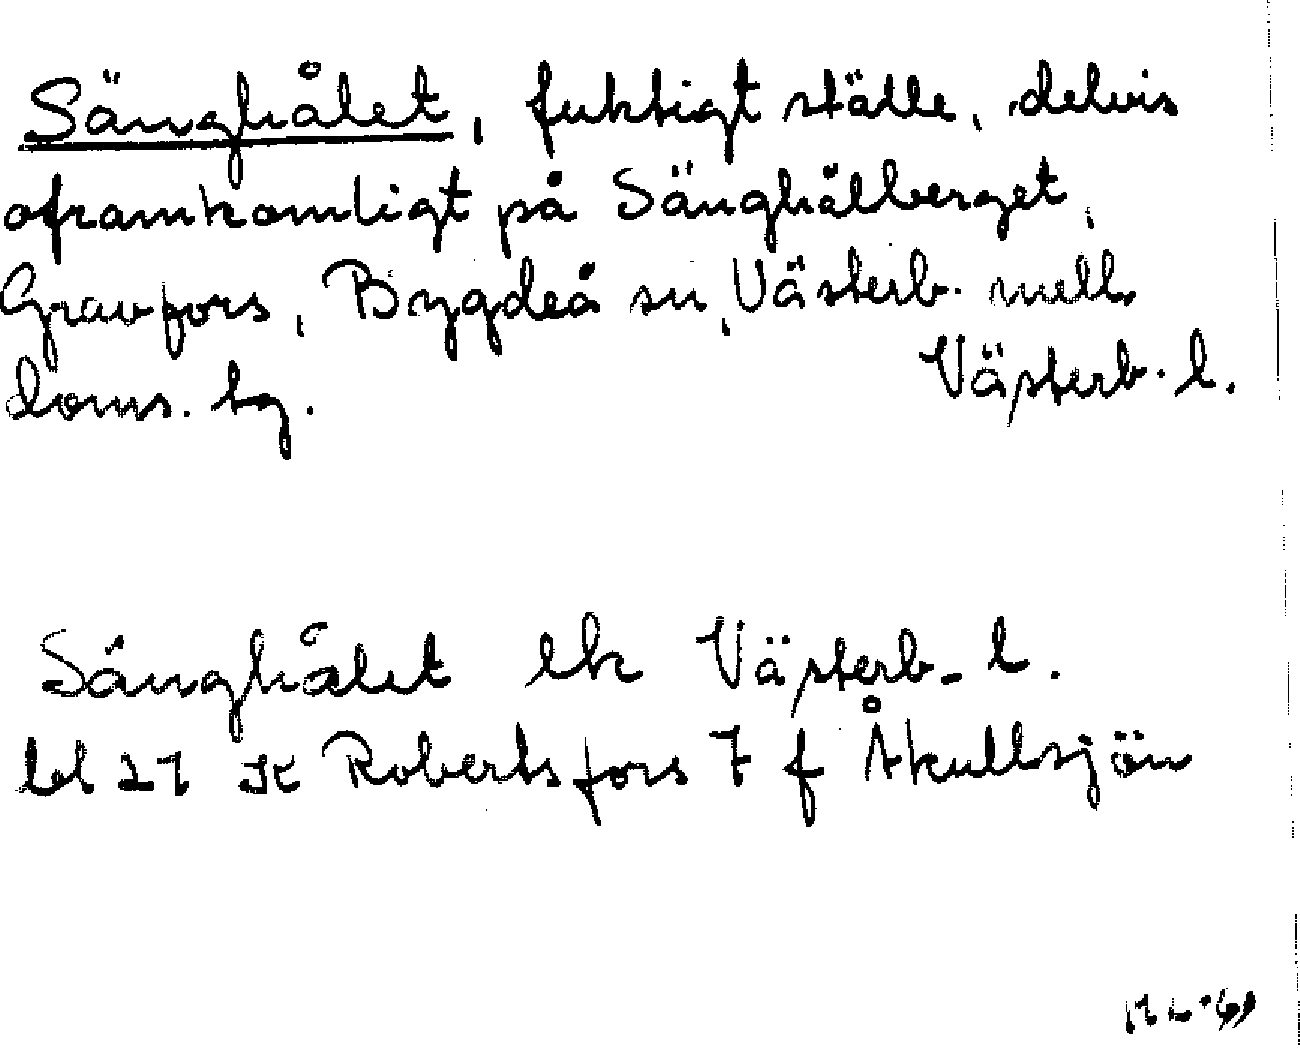 Sänghålet, fuktigt ställe, delvis
oframkomligt på Sänghålberget,
Gravfors, Bygdeå sn, Västerb. mell.
doms. tg.
Västerb. l.
Sänghålet ek Västerb. l.
bl 21 K Robertsfors 7 f Åkullsjön